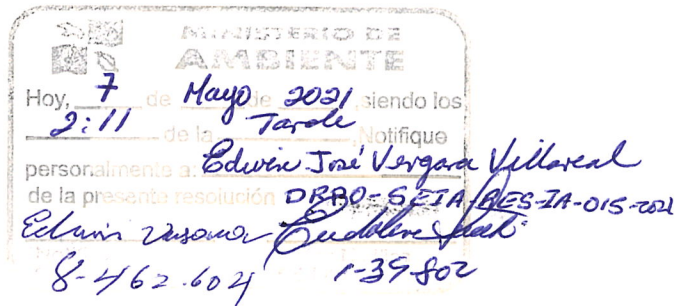 MINISTERIO DE
AMBIENTE
Hoy, 7 de Mayo de 2021, siendo los
2:11 de la Tarde Notifique
personalmente a: Edwin José Vergara Villareal
de la presente resolución DRPO-SEIA-RES-IA-015-2021
Edwin
8-462-604 1-39-802